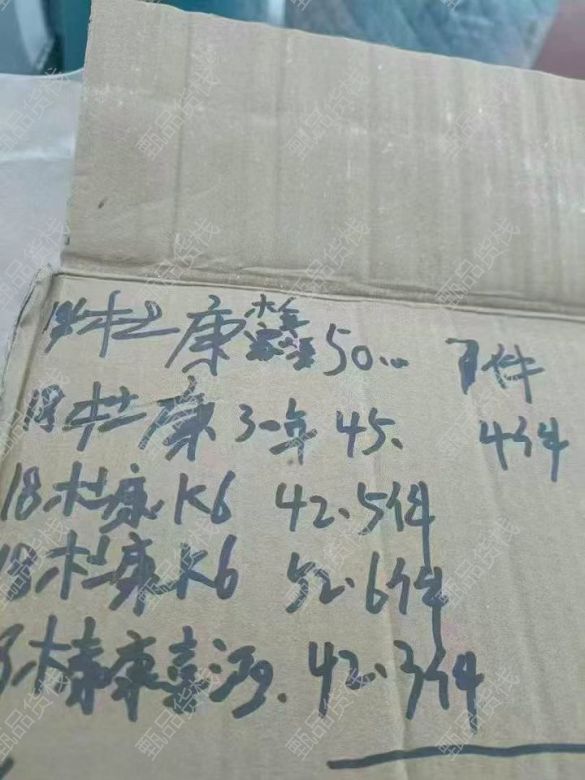 18杜康 50 7件
18杜康 3年 45. 4件
18杜康 K6 42.5件
18杜康 K6 52.6件
康喜酒.42.3件
甄品货栈